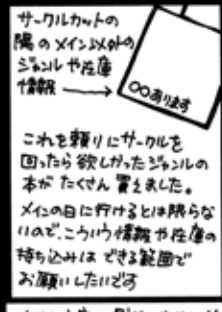 サークルカットの
隅のメイン以外の
ジャンルや在庫
情報
○○あります
これを頼りにサークルを
回ったら欲しかったジャンルの
本がたくさん買えました。
メインの日に行けるとは限らな
いので、こういう情報や在庫の
持ち込みはできる範囲で
お願いしたいです